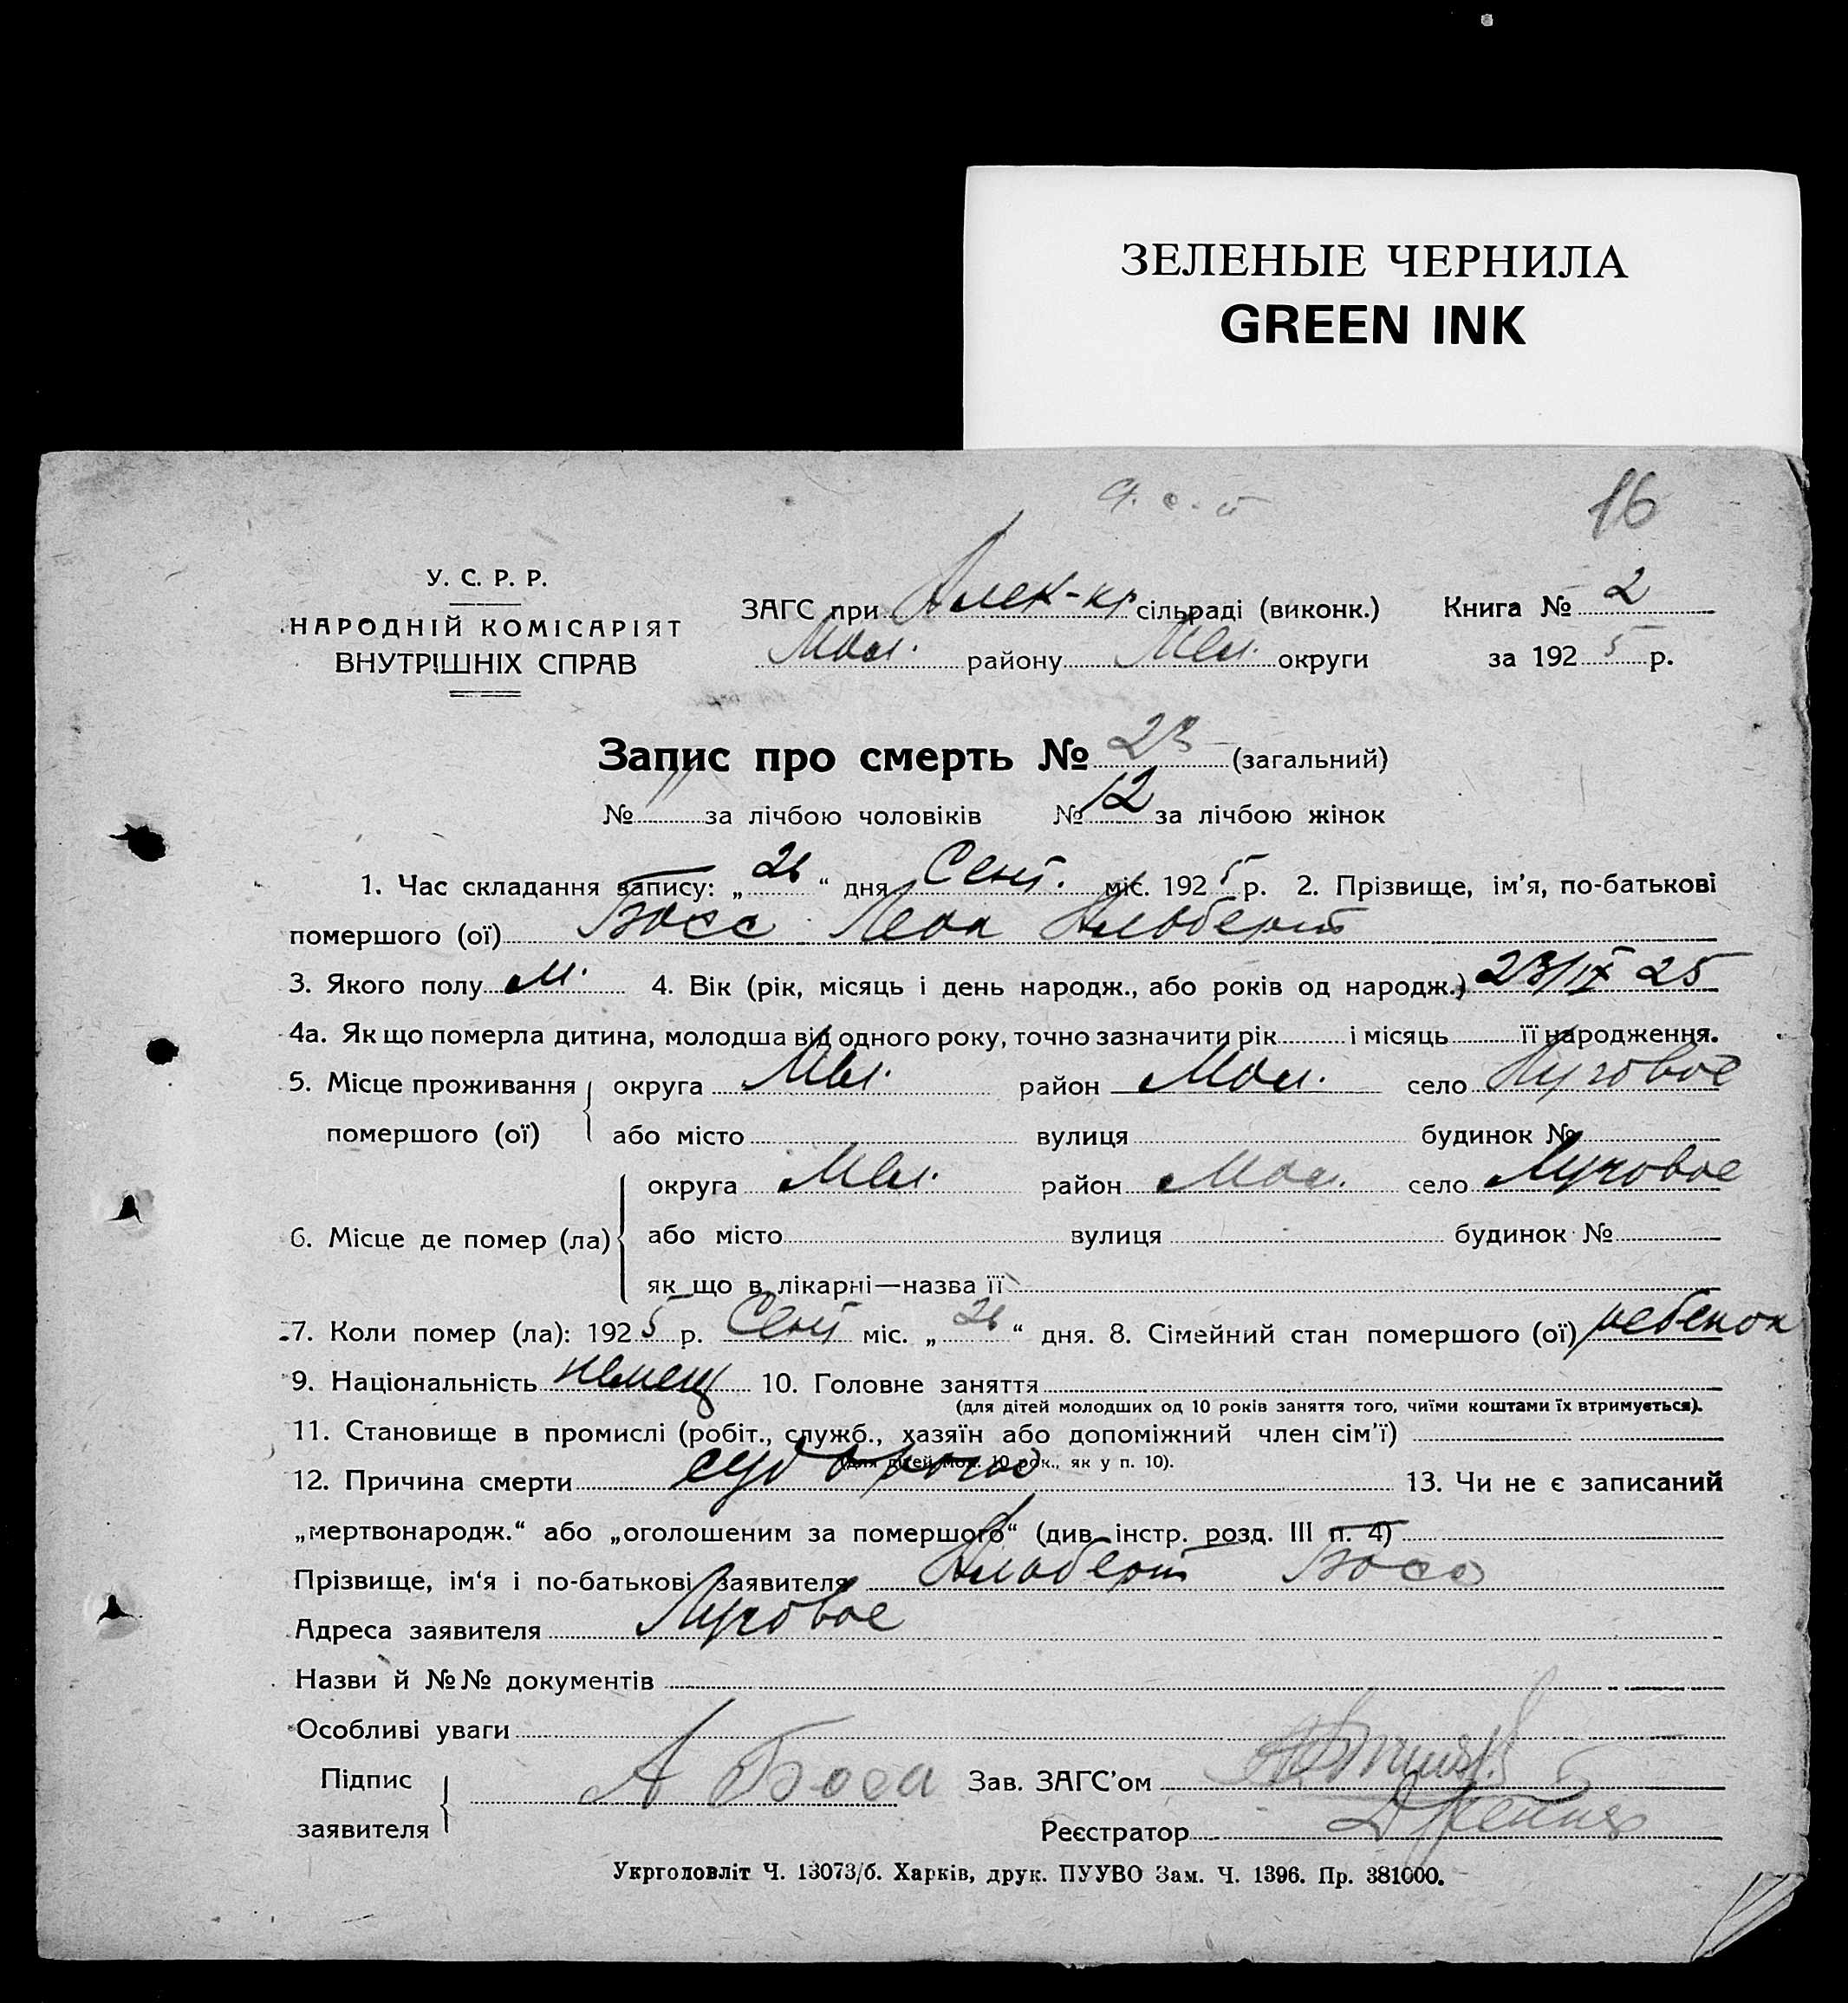 ЗЕЛЕНЫЕ ЧЕРНИЛА
GREEN INK
16
У. С. Р. Р.
НАРОДНІЙ КОМІСАРІЯТ
ВНУТРІШНІХ СПРАВ
ЗАГС при Алек-кр сільраді (виконк.) Книга № 2
Мол. району Мел. округи за 1925 р.
Запис про смерть № 23 (загальний)
№ 11 за лічбою чоловіків № 12 за лічбою жінок
1. Час складання запису: „26“ дня Сент. міс. 1925 р. 2. Прізвище, ім'я, по-батькові
помершого (ої) Восс Леон Альберт
3. Якого полу м. 4. Вік (рік, місяць і день народж., або років од народж.) 23/IX 25
4а. Як що померла дитина, молодша від одного року, точно зазначити рік і місяць її народження.
5. Місце проживання округа Мел. район Мол. село Луговое
помершого (ої) або місто вулиця будинок №
округа Мел. район Мол. село Луговое
6. Місце де помер (ла) або місто вулиця будинок №
як що в лікарні—назва її
7. Коли помер (ла): 1925 р. Сент міс. „26“ дня. 8. Сімейний стан помершого (ої) ребенок
9. Національність немец 10. Головне заняття
(для дітей молодших од 10 років заняття того, чиїми коштами їх втримується).
11. Становище в промислі (робіт., служб., хазяїн або допоміжний член сім'ї)
(для дітей мол. 10 рок., як у п. 10).
12. Причина смерти судороги 13. Чи не є записаний
„мертвонародж.“ або „оголошеним за помершого“ (див. інстр. розд. III п. 4)
Прізвище, ім'я і по-батькові заявителя Альберт Восс
Адреса заявителя Луговое
Назви й №№ документів
Особливі уваги
Підпис
заявителя А Восс
Зав. ЗАГС'ом
Реєстратор
Укрголовліт Ч. 13073/б. Харків, друк. ПУУВО Зам. Ч. 1396. Пр. 381000.